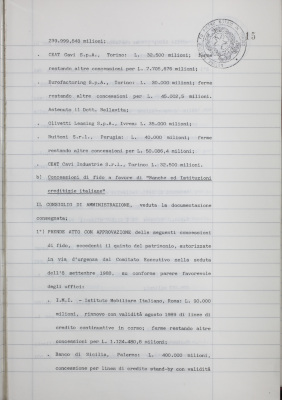 279.098,848 milioni;
. CEAT Cavi S.p.A., Torino: L. 32.500 milioni; ferme
restando altre concessioni per L. 7.702,875 milioni;
. Eurofactoring S.p.A., Torino: L. 30.000 milioni; ferme
restando altre concessioni per L. 45.002,5 milioni.
Astenuto il Dott.
. Olivetti Leasing S.p.A., Ivrea: L. 35.000 milioni;
. Buitoni S.r.l., Perugia: L. 40.000 milioni; ferme
restando altre concessioni per L. 50.086,4 milioni;
. CEAT Cavi Industrie S.r.l., Torino: L. 32.500 milioni.
b) Concessioni di fido a favore di "Banche ed Istituzioni
creditizie italiane"
IL CONSIGLIO DI AMMINISTRAZIONE, veduta la documentazione
consegnata;
1°) PRENDE ATTO CON APPROVAZIONE delle seguenti concessioni
di fido, eccedenti il quinto del patrimonio, autorizzate
in via d'urgenza dal Comitato Esecutivo nella seduta
dell'8 settembre 1982, su conforme parere favorevole
degli uffici:
. I.M.I. - Istituto Mobiliare Italiano, Roma: L. 20.000
milioni, rinnovo con validità agosto 1983 di linea di
credito continuativo in corso; ferme restando altre
concessioni per L. 1.724.480,5 milioni;
. Banco di Sicilia, Palermo: L. 400.000 milioni,
concessione per linea di credito stand-by con validità